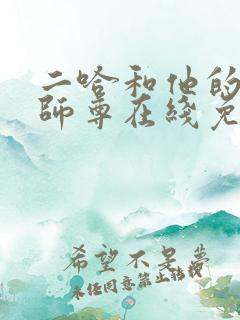 二哈和他的
师尊在线免
希望不是梦
未经同意禁止转载